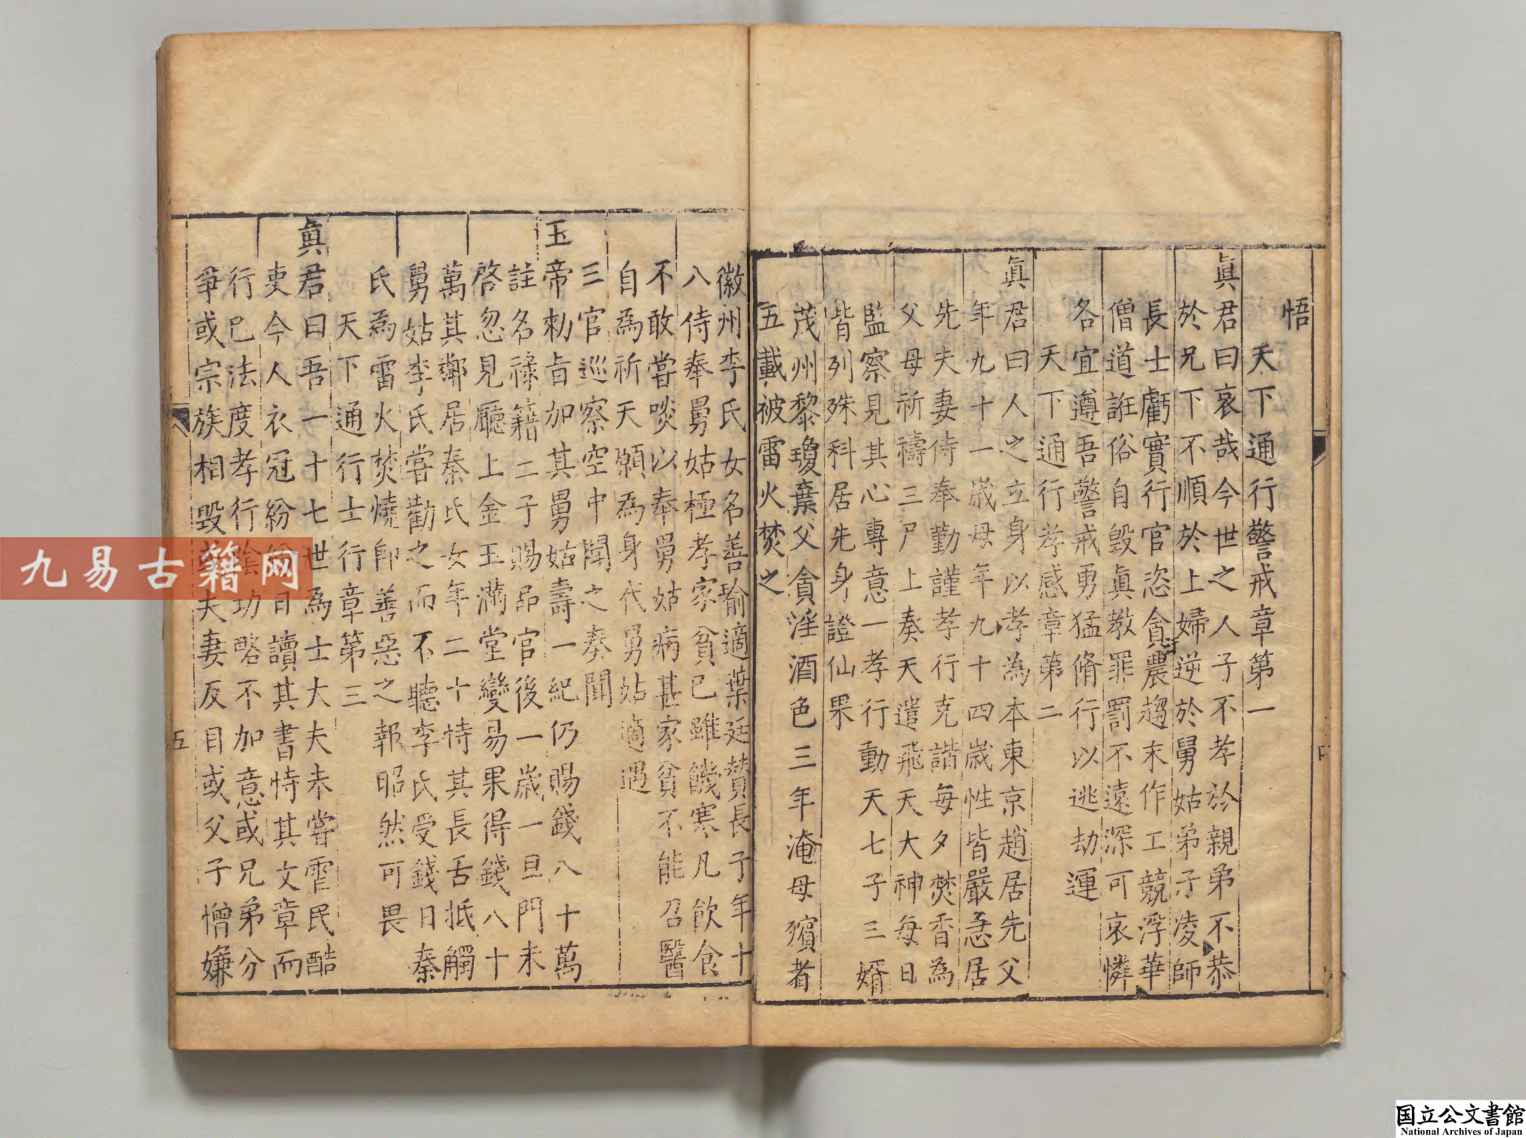 悟
天下通行警戒章第一
眞君曰哀哉今世之人子不孝於親弟不恭
於兄下不順於上婦逆於舅姑弟子凌師
長士虧實行官恣貪淫農趨末作工競浮華
僧道誑俗自毀眞教罪罰不遠深可哀憐
各宜遵吾警戒勇猛脩行以逃劫運
天下通行孝感章第二
眞君曰人之立身以孝為本東京趙居先父
年九十一歲母年九十四歲性皆嚴急居
先夫妻侍奉勤謹孝行克諧每夕焚香為
父母祈禱三尸上奏天遣飛天大神每日
監察見其心專意一孝行動天七子三婿
皆列殊科居先身證仙果
茂州黎瓊棄父貪淫酒色三年淹母殯者
五載被雷火焚之
徽州李氏女名善瑜適葉廷贊長子年十
八侍奉舅姑極孝家貧已雖饑寒凡飲食
不敢嘗啖以奉舅姑病甚家貧不能召醫
自為祈天願為身代舅姑適遇
三官巡察空中聞之奏聞
玉帝勑旨加其舅姑壽一紀仍賜錢八十萬
註名祿籍二子賜品官後一歲一旦門未
啓忽見廳上金玉滿堂變易果得錢八十
萬其鄰居秦氏女年二十恃其長舌抵觸
舅姑李氏嘗勸之而不聽李氏受錢日秦
氏為雷火焚燒卸善惡之報昭然可畏
天下通行士行章第三
眞君曰吾一十七世爲士大夫未嘗虐民酷
吏今人衣冠紛紛日讀其書恃其文章而
行已法度孝行陰功略不加意或兄弟分
爭或宗族相毀或夫妻反目或父子憎嫌
五
九易古籍网
国立公文書館
National Archives of Japan